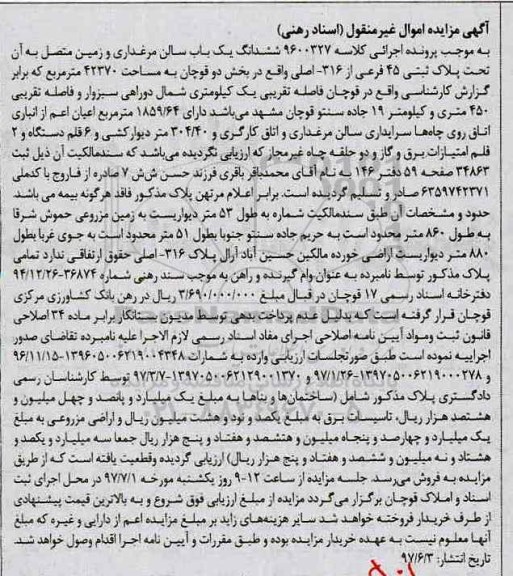 آگهی مزایده اموال غیرمنقول (اسناد رهنی)
به موجب پرونده اجرائی کلاسه ۹۶۰۰۳۲۷ ششدانگ یک باب سالن مرغداری و زمین متصل به آن
تحت پلاک ثبتی ۴۵ فرعی از ۳۱۶- اصلی واقع در بخش دو قوچان به مساحت ۴۲۳۷۰ مترمربع که برابر
گزارش کارشناسی واقع در قوچان فاصله تقریبی یک کیلومتری شمال دوراهی سبزوار و فاصله تقریبی
۴۵۰ متری و کیلومتر ۱۹ جاده سنتو قوچان مشهد می‌باشد دارای ۱۸۵۹/۶۴ مترمربع اعیان اعم از انباری
اتاق روی چاه‌ها سرایداری سالن مرغداری و اتاق کارگری و ۳۰۴/۴۰ متر دیوارکشی و ۶ قلم دستگاه و ۲
قلم امتیازات برق و گاز و دو حلقه چاه غیرمجاز که ارزیابی نگردیده می‌باشد که سندمالکیت آن ذیل ثبت
۳۴۸۶۳ صفحه ۵۹ دفتر ۱۴۶ به نام آقای محمدباقر باقری فرزند حسن ش‌ش ۷ صادره از فاروج با کدملی
۶۳۵۹۷۴۲۳۷۱ صادر و تسلیم گردیده است. برابر اعلام مرتهن پلاک مذکور فاقد هرگونه بیمه می باشد.
حدود و مشخصات آن طبق سندمالکیت شماره به طول ۵۳ متر دیواریست به زمین مزروعی حموش شرقا
به طول ۸۶۰ متر محدود است به حریم جاده سنتو جنوبا بطول ۵۱ متر محدود است به جوی غربا بطول
۸۸۰ متر دیواریست اراضی خورده مالکین حسین آباد آرال پلاک ۳۱۶- اصلی حقوق ارتفاقی ندارد تمامی
پلاک مذکور توسط نامبرده به عنوان وام گیرنده و راهن به موجب سند رهنی شماره ۳۶۸۷۴-۹۴/۱۲/۲۶
دفترخانه اسناد رسمی ۱۷ قوچان در قبال مبلغ ۳/۶۹۰/۰۰۰/۰۰۰ ریال در رهن بانک کشاورزی مرکزی
قوچان قرار گرفته است که بدلیل عدم پرداخت بدهی توسط مدیون، بستانکار برابر ماده ۳۴ اصلاحی
قانون ثبت ومواد آیین نامه اصلاحی اجرای مفاد اسناد رسمی لازم الاجرا علیه نامبرده تقاضای صدور
اجراییه نموده است طبق صورتجلسات ارزیابی وارده به شمارات ۱۳۹۶۰۵۰۰۶۲۱۹۰۰۴۳۴۸-۹۶/۱۱/۱۵
و ۱۳۹۷۰۵۰۰۶۲۱۹۰۰۰۲۷۸-۹۷/۱/۲۶ و ۱۳۹۷۰۵۰۰۶۲۱۲۹۰۰۱۳۷۰-۹۷/۳/۷ توسط کارشناسان رسمی
دادگستری پلاک مذکور شامل (ساختمان‌ها و بناها به مبلغ یک میلیارد و پانصد و چهل میلیون و
هشتصد هزار ریال، تاسیسات برق به مبلغ یکصد و نود و هشت میلیون ریال و اراضی مزروعی به مبلغ
یک میلیارد و چهارصد و پنجاه میلیون و هشتصد و هفتاد و پنج هزار ریال جمعا سه میلیارد و یکصد و
هشتاد و نه میلیون و ششصد و هفتاد و پنج هزار ریال) ارزیابی گردیده وقطعیت یافته است که از طریق
مزایده به فروش می‌رسد. جلسه مزایده از ساعت ۱۲-۹ روز یکشنبه مورخه ۹۷/۷/۱ در محل اجرای ثبت
اسناد و املاک قوچان برگزار می‌گردد مزایده از مبلغ ارزیابی فوق شروع و به بالاترین قیمت پیشنهادی
از طرف خریدار فروخته خواهد شد سایر هزینه‌های زاید بر مبلغ مزایده اعم از دارایی و غیره که مبلغ
آنها معلوم نیست به عهده خریدار مزایده بوده و طبق مقررات و آیین نامه اجرا اقدام وصول خواهد شد.
تاریخ انتشار: ۹۷/۶/۳